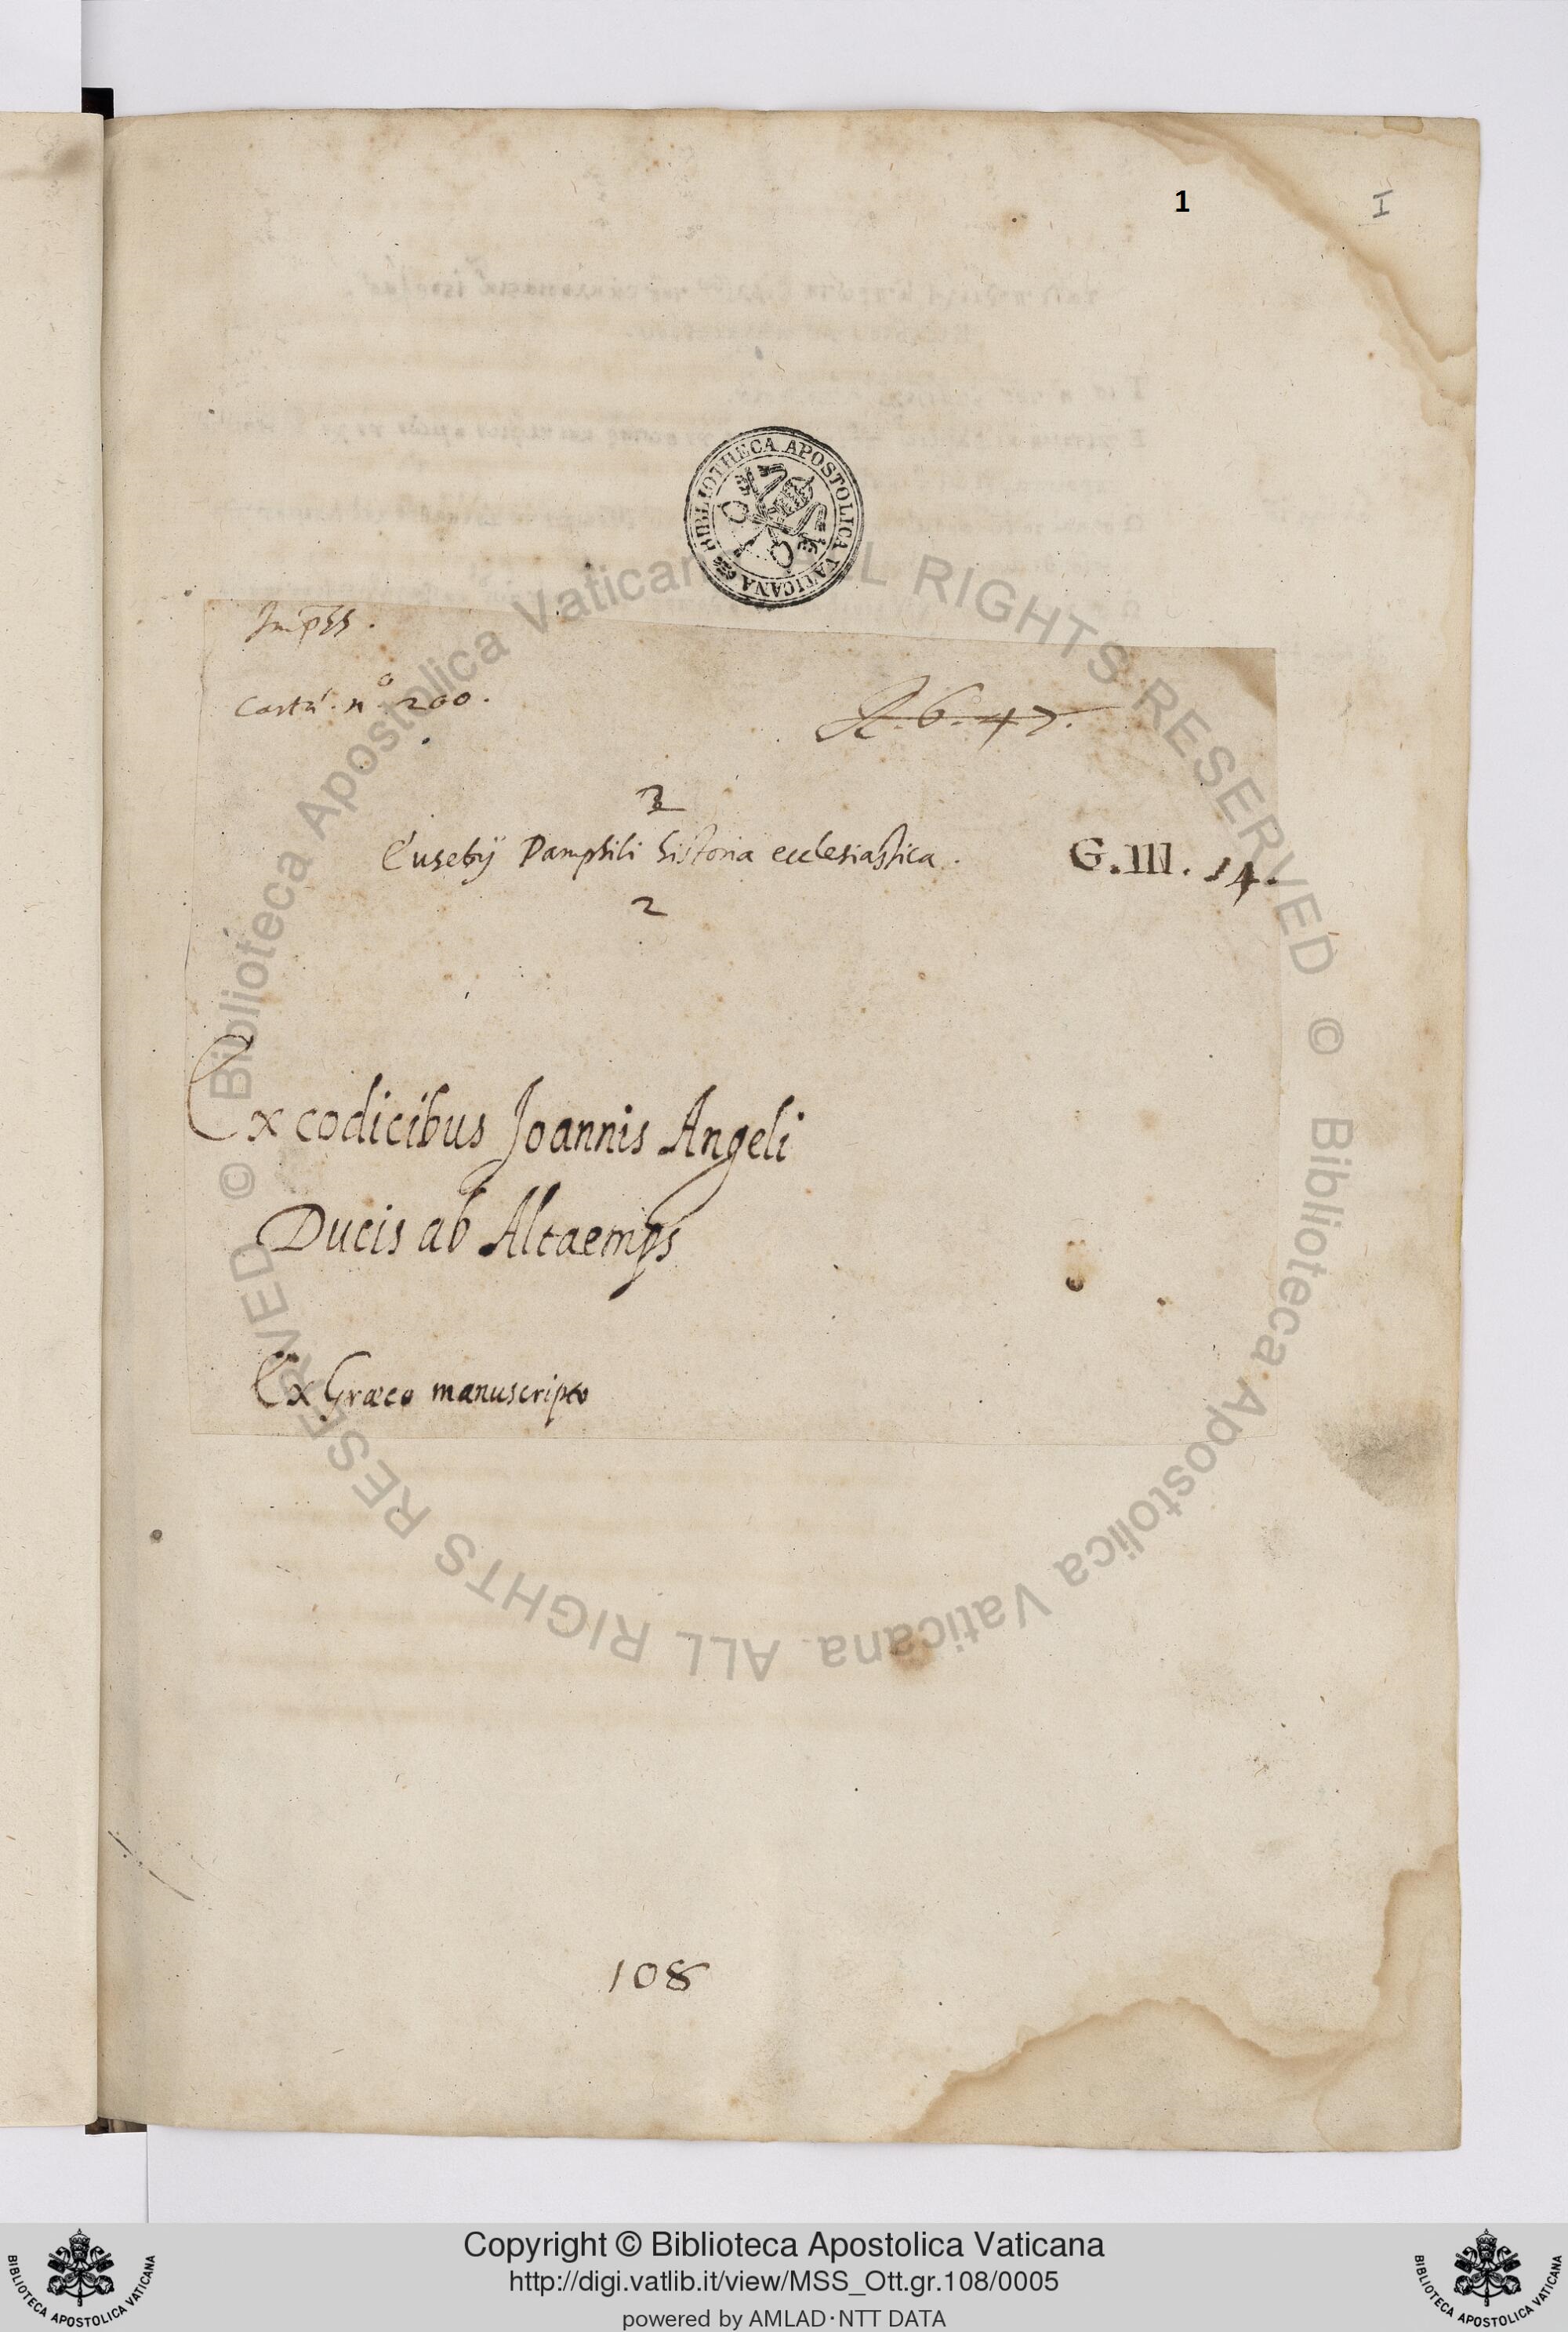 1
I
BIBLIOTHECA APOSTOLICA VATICANA
Carta. n.o 200.
A.6.47.
Eusebij Pamphili historia ecclesiastica.
G.III.14.
2
Ex codicibus Joannis Angeli
Ducis ab Altaemps
Ex Græco manuscripto
108
© Biblioteca Apostolica Vaticana ALL RIGHTS RESERVED © Biblioteca Apostolica Vaticana ALL RIGHTS RESERVED
Copyright © Biblioteca Apostolica Vaticana
http://digi.vatlib.it/view/MSS_Ott.gr.108/0005
powered by AMLAD·NTT DATA
BIBLIOTECA APOSTOLICA VATICANA
BIBLIOTECA APOSTOLICA VATICANA